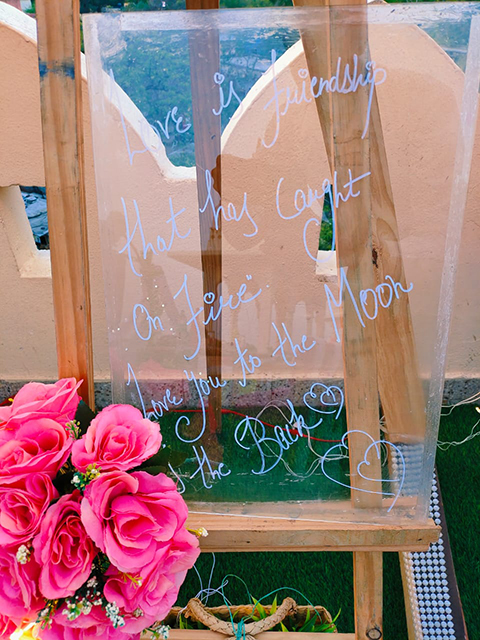 Love is friendship
that has Caught
On Fire.
Love you to the Moon
& the Back